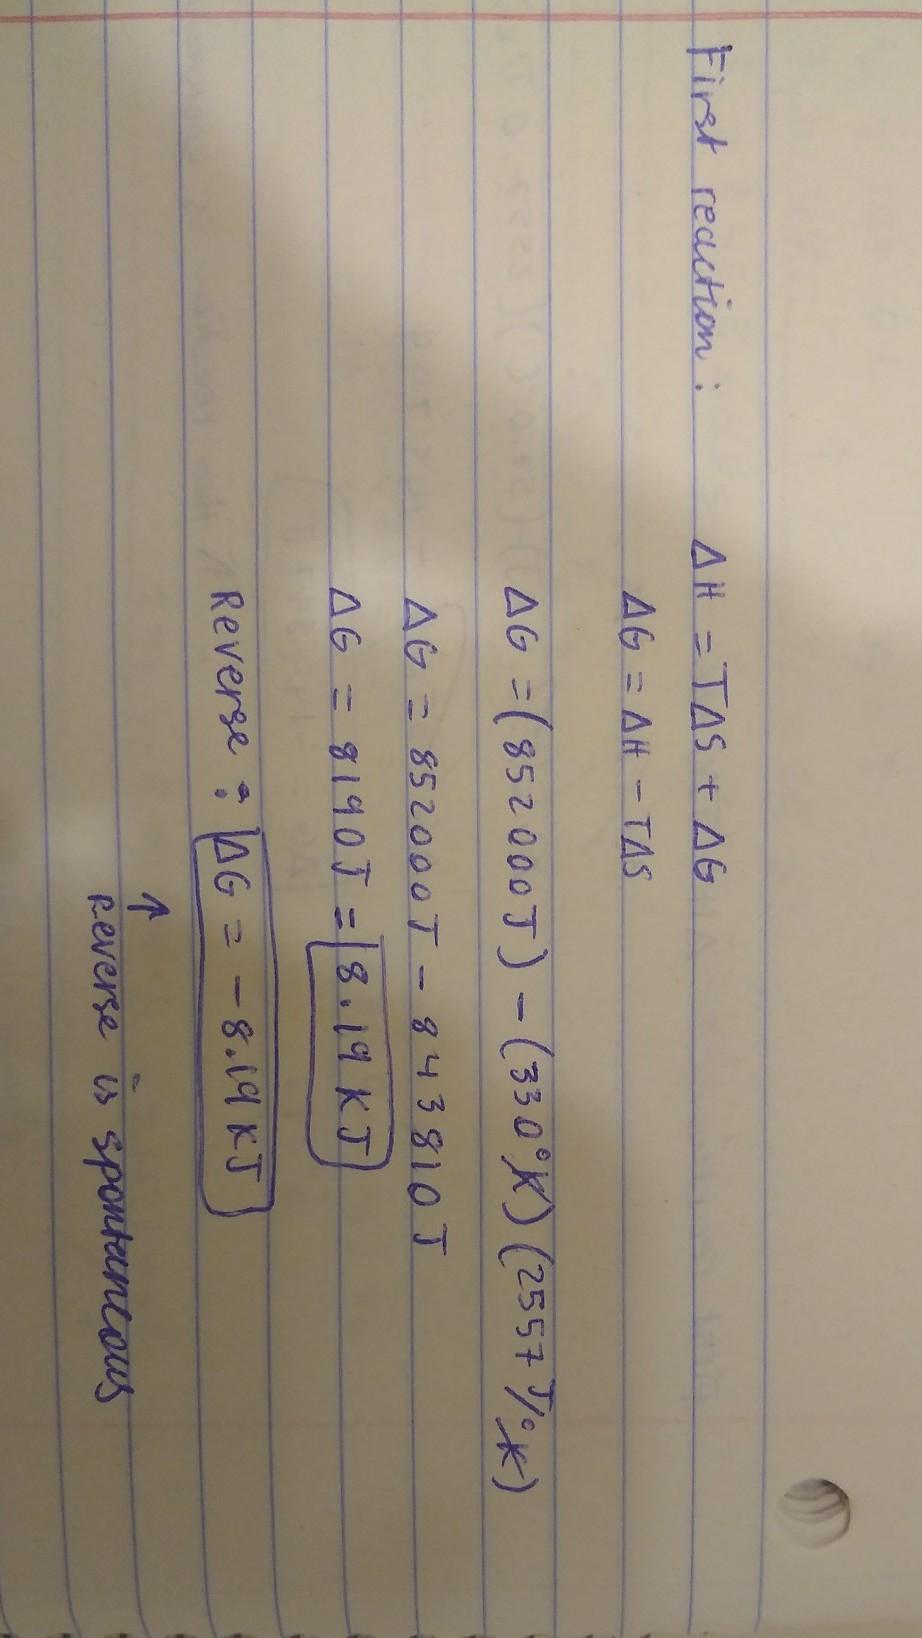 First reaction: ΔH = TΔS + ΔG
ΔG = ΔH - TΔS
ΔG = (852000J) - (330°K)(2557 J/°K)
ΔG = 852000J - 843810J
ΔG = 8190J = 8.19 KJ
Reverse: ΔG = -8.19 KJ
↑
Reverse is spontaneous